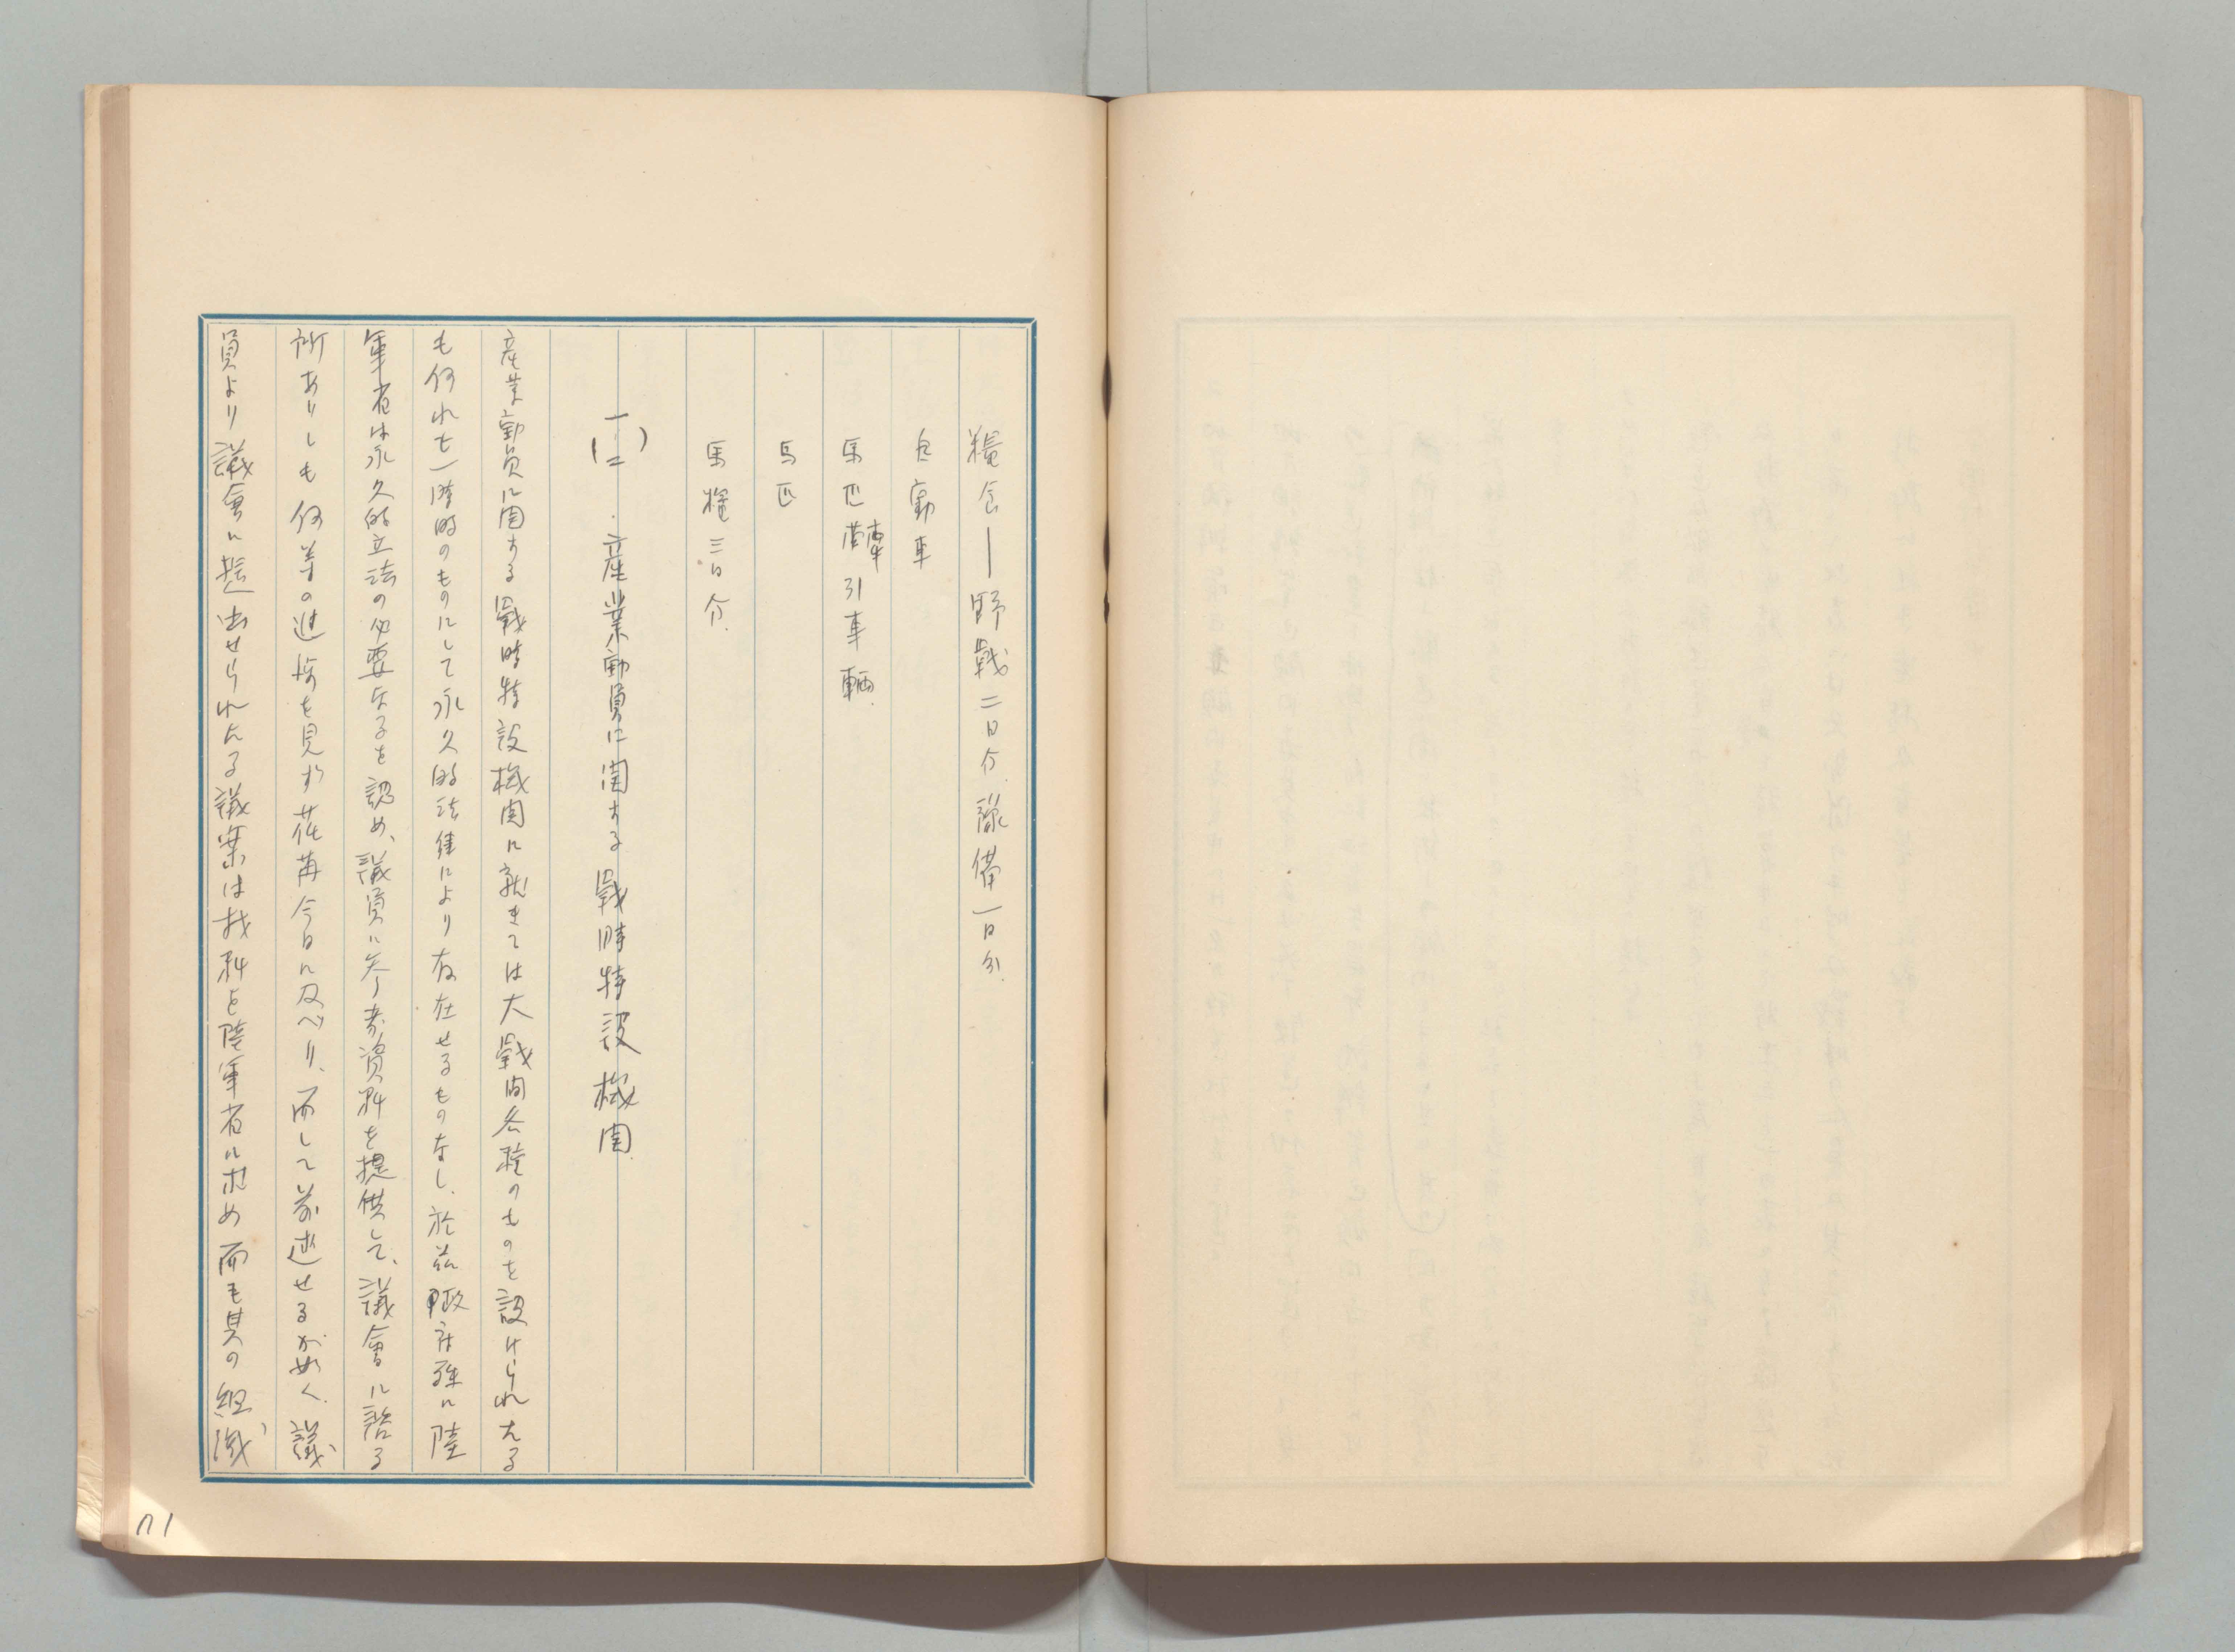 糧食―野戦二日分、予備一日分、
自動車
馬匹牽引車輌、
馬匹
馬糧三日分、
(二)、産業動員に関する戦時特設機関
産業動員に関する戦時特設機関に就きては大戦間各種のものを設けられたる
も何れも一時的のものにして永久的法律により存在せるものなし、於茲政府殊に陸
軍省は永久的立法の必要なるを認め、議員に参考資料を提供して、議会に諮る
所ありしも何等の進捗を見ず荏苒今日に及べり、而して前述せるが如く、議
員より議會に提出せられたる議案は材料を陸軍省に求め而も其の組織
71